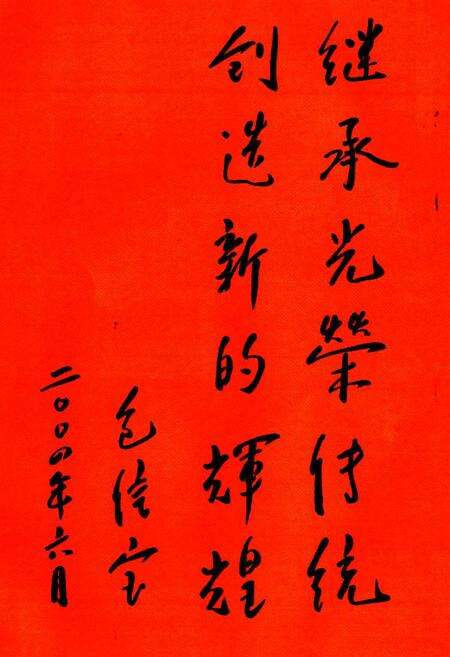 继承光榮传统
创造新的辉煌
包信宝
二〇〇四年六月